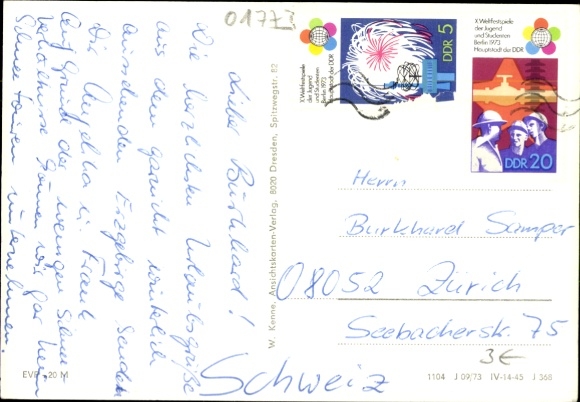 01773
X. Weltfestspiele
der Jugend
und Studenten
Berlin 1973
Hauptstadt der DDR
DDR 5
X. Weltfestspiele
der Jugend
und Studenten
Berlin 1973
Hauptstadt der DDR
DDR 20
Lieber Burkhard!
Die herzlichsten Urlaubsgrüße
aus dem gar nicht wirklich
ausschauenden Erzgebirge senden
Dir Angelika u. Frank
Auf Grund der wenigen Schnee
verhältnisse können wir gar keine
Skitouren unternehmen.
W. Kenne, Ansichtskarten-Verlag, 8020 Dresden, Spitzwegstr. 82
Herrn
Burkhard Samper
08052 Zürich
Seebacherstr. 75
Schweiz
3€
EVP 20 M
1104 J 09/73 IV-14-45 J 368